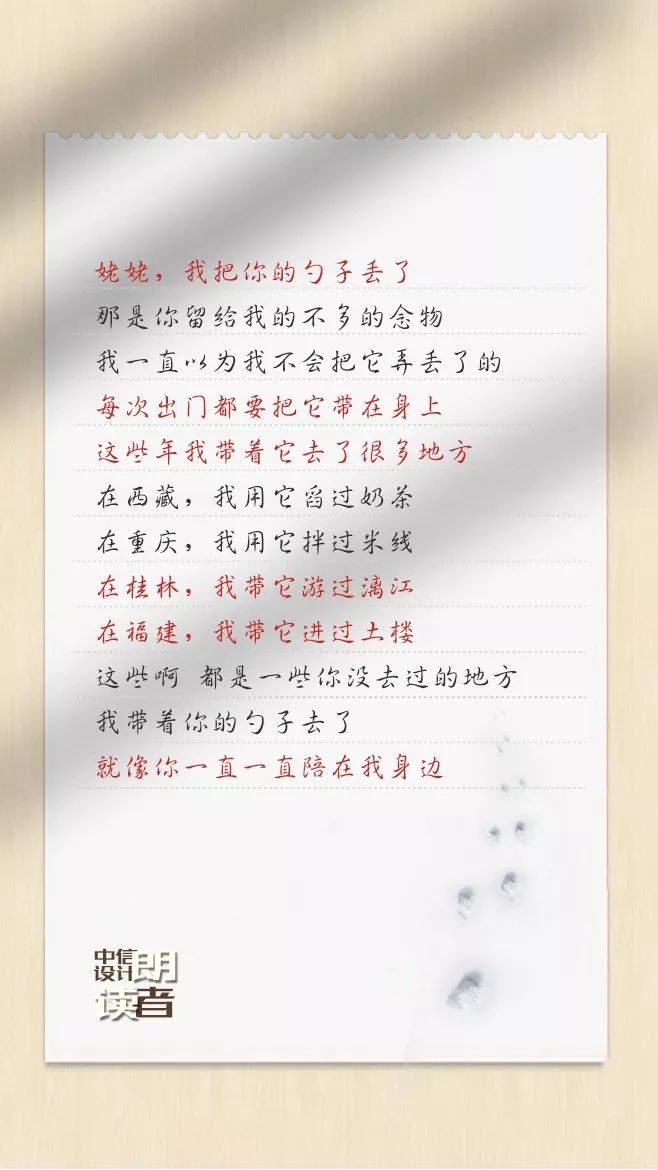 姥姥，我把你的勺子丢了
那是你留给我的不多的念物
我一直以为我不会把它再丢了的
每次出门都要把它带在身上
这些年我带着它去了很多地方
在西藏，我用它舀过奶茶
在重庆，我用它拌过米线
在桂林，我带它游过漓江
在福建，我带它进过土楼
这些啊 都是一些你没去过的地方
我带着你的勺子去了
就像你一直一直陪在我身边
中信
设计
朗
读者